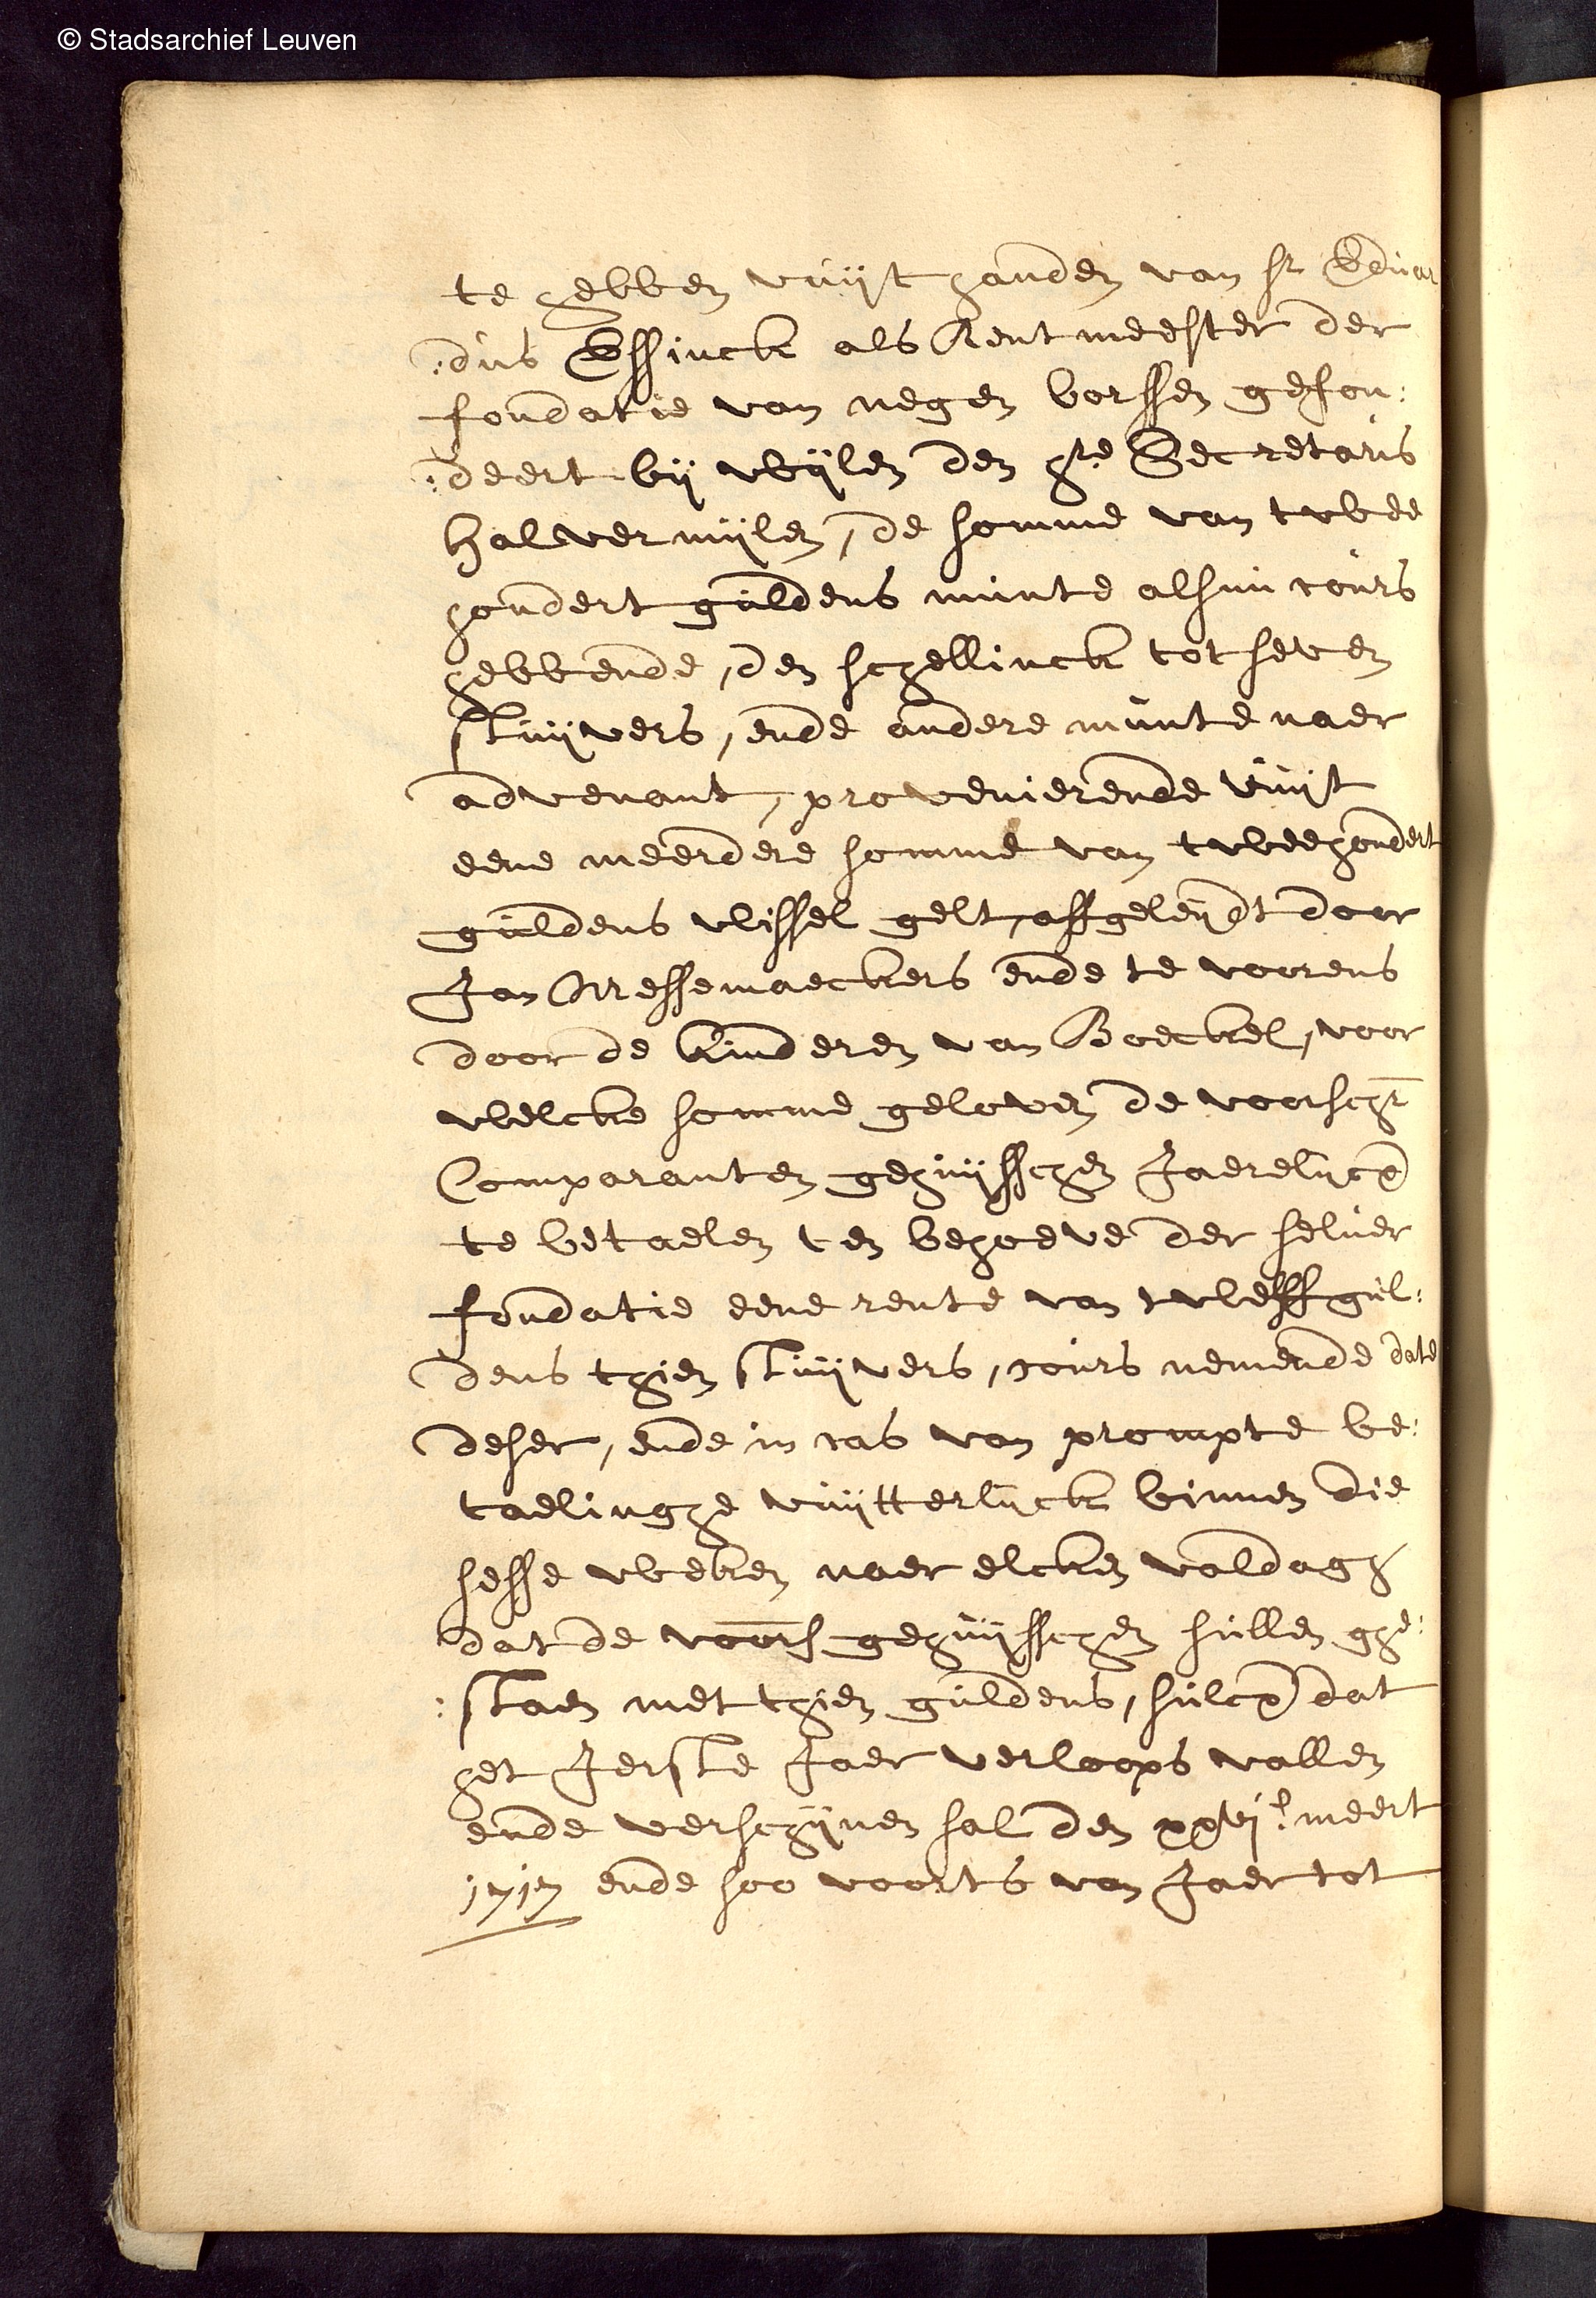 © Stadsarchief Leuven
te hebben vuijt handen van sr Eduar
:dus Essinck als Rentmeester der
fondatie van negen borssen gefon:
:deert bij wijlen den hre Secretaris
Halvermijlen, de somme van twee
hondert guldens munte alsnu cours
hebbende, den schellinck tot seven
stuijvers, ende andere munte naer
advenant, provenierende vuijt
eene meerdere somme van tweehondert
guldens wissel gelt, affgeleijdt door
Jan Messemaeckers ende te voorens
door de kinderen van Boeckel, voor
welcke somme geloven de voorschr
Comparanten gehuijsschen Jaerelijcx
te betaelen ten behoeve der selver
fondatie eene rente van tweleff gul:
dens thien stuijvers, cours nemende date
deser, ende in cas van prompte be:
taelinghe vuijtterlijck binnen die
sesse weken naer elcken valdagh
dat de voors gehuijsschen sullen ghe:
:staen met thien guldens, sulcx dat
het Jerste Jaer verloops vallen
ende verschijnen sal den xxvje meert
1717 ende soo voorts van Jaer tot